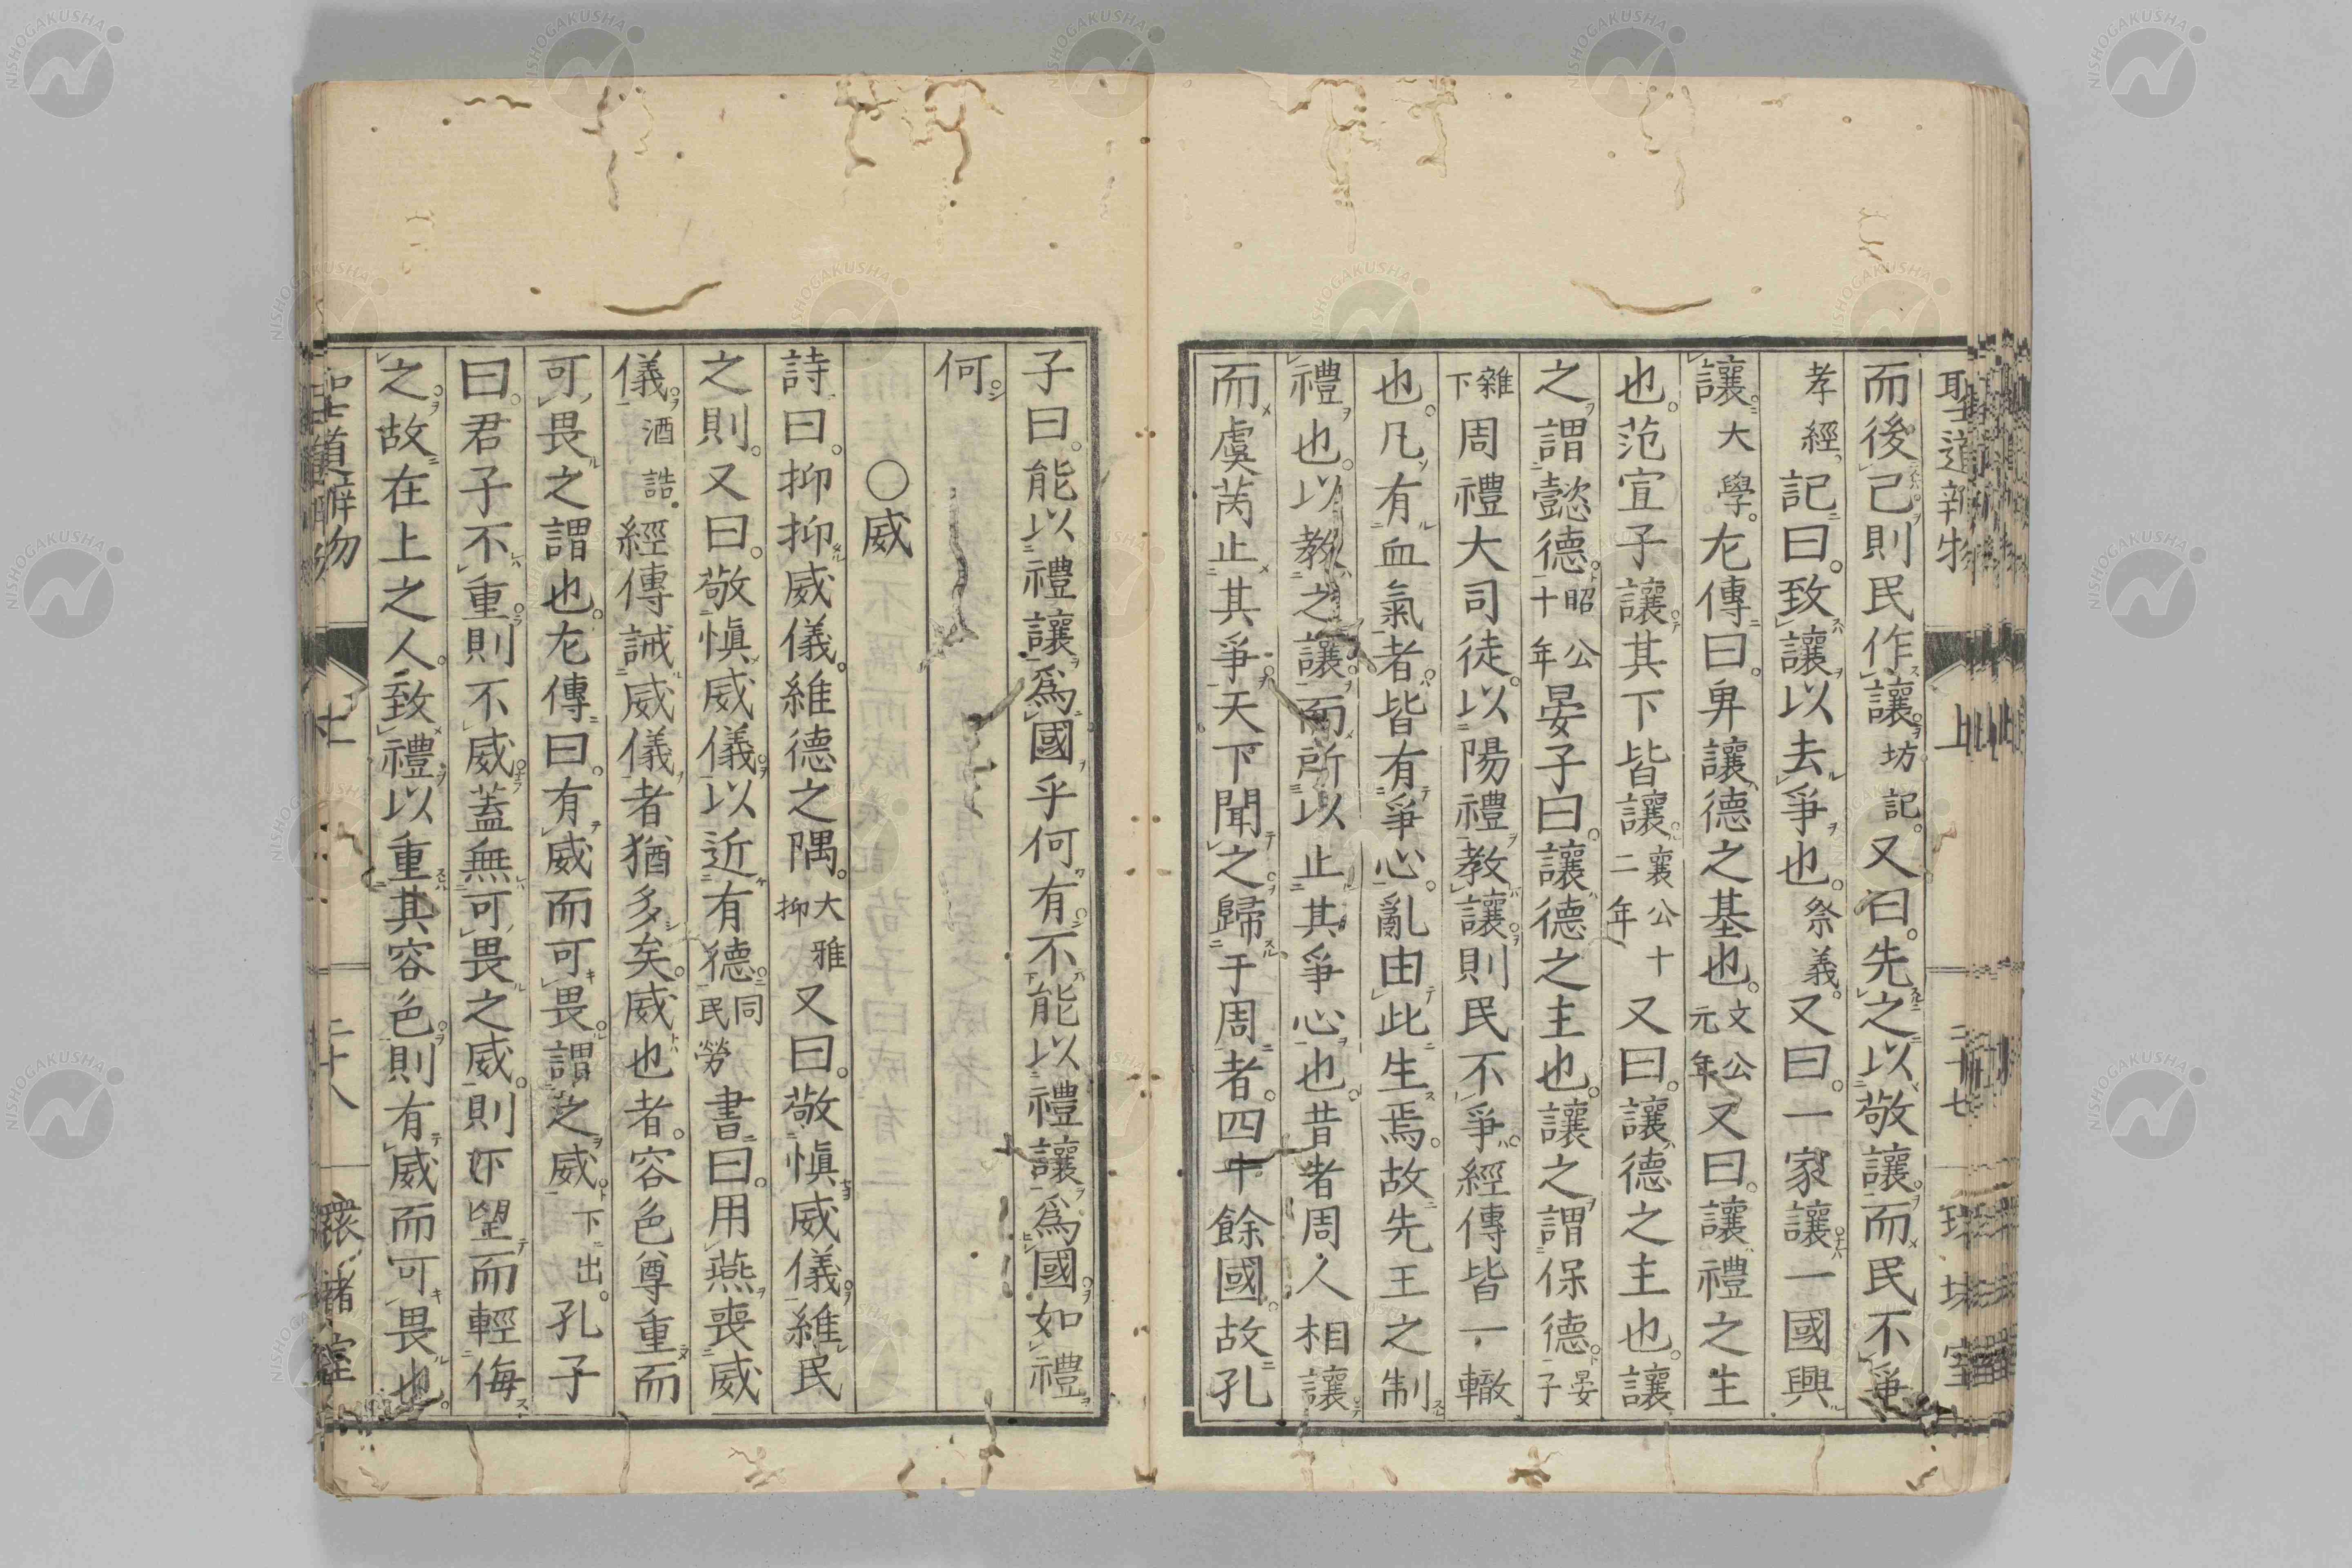 而後己則民作讓坊記又曰先之以敬讓而民不爭
孝經記曰致讓以去爭也祭義又曰一家讓一國興
讓大學左傳曰卑讓德之基也文公元年又曰讓禮之主
也范宣子讓其下皆讓襄公十二年又曰讓德之主也讓
之謂懿德昭公十年晏子曰讓德之主也讓之謂保德晏子
雜下周禮大司徒以陽禮教讓則民不爭經傳皆一轍
也凡有血氣者皆有爭心亂由此生焉故先王之制
禮也以教之讓而所以止其爭心也昔者周人相讓
而虞芮止其爭天下聞之歸于周者四十餘國故孔
子曰能以禮讓爲國乎何有不能以禮讓爲國如禮
何
○威
詩曰抑抑威儀維德之隅大雅抑又曰敬愼威儀維民
之則又曰敬愼威儀以近有德同民勞書曰用燕喪威
儀酒誥經傳誡威儀者猶多矣威也者容色尊重而
可畏之謂也左傳曰有威而可畏謂之威下出孔子
曰君子不重則不威蓋無可畏之威則下望而輕侮
之故在上之人致禮以重其容色則有威而可畏也
聖道辨物 上 二十八
NISHOGAKUSHA